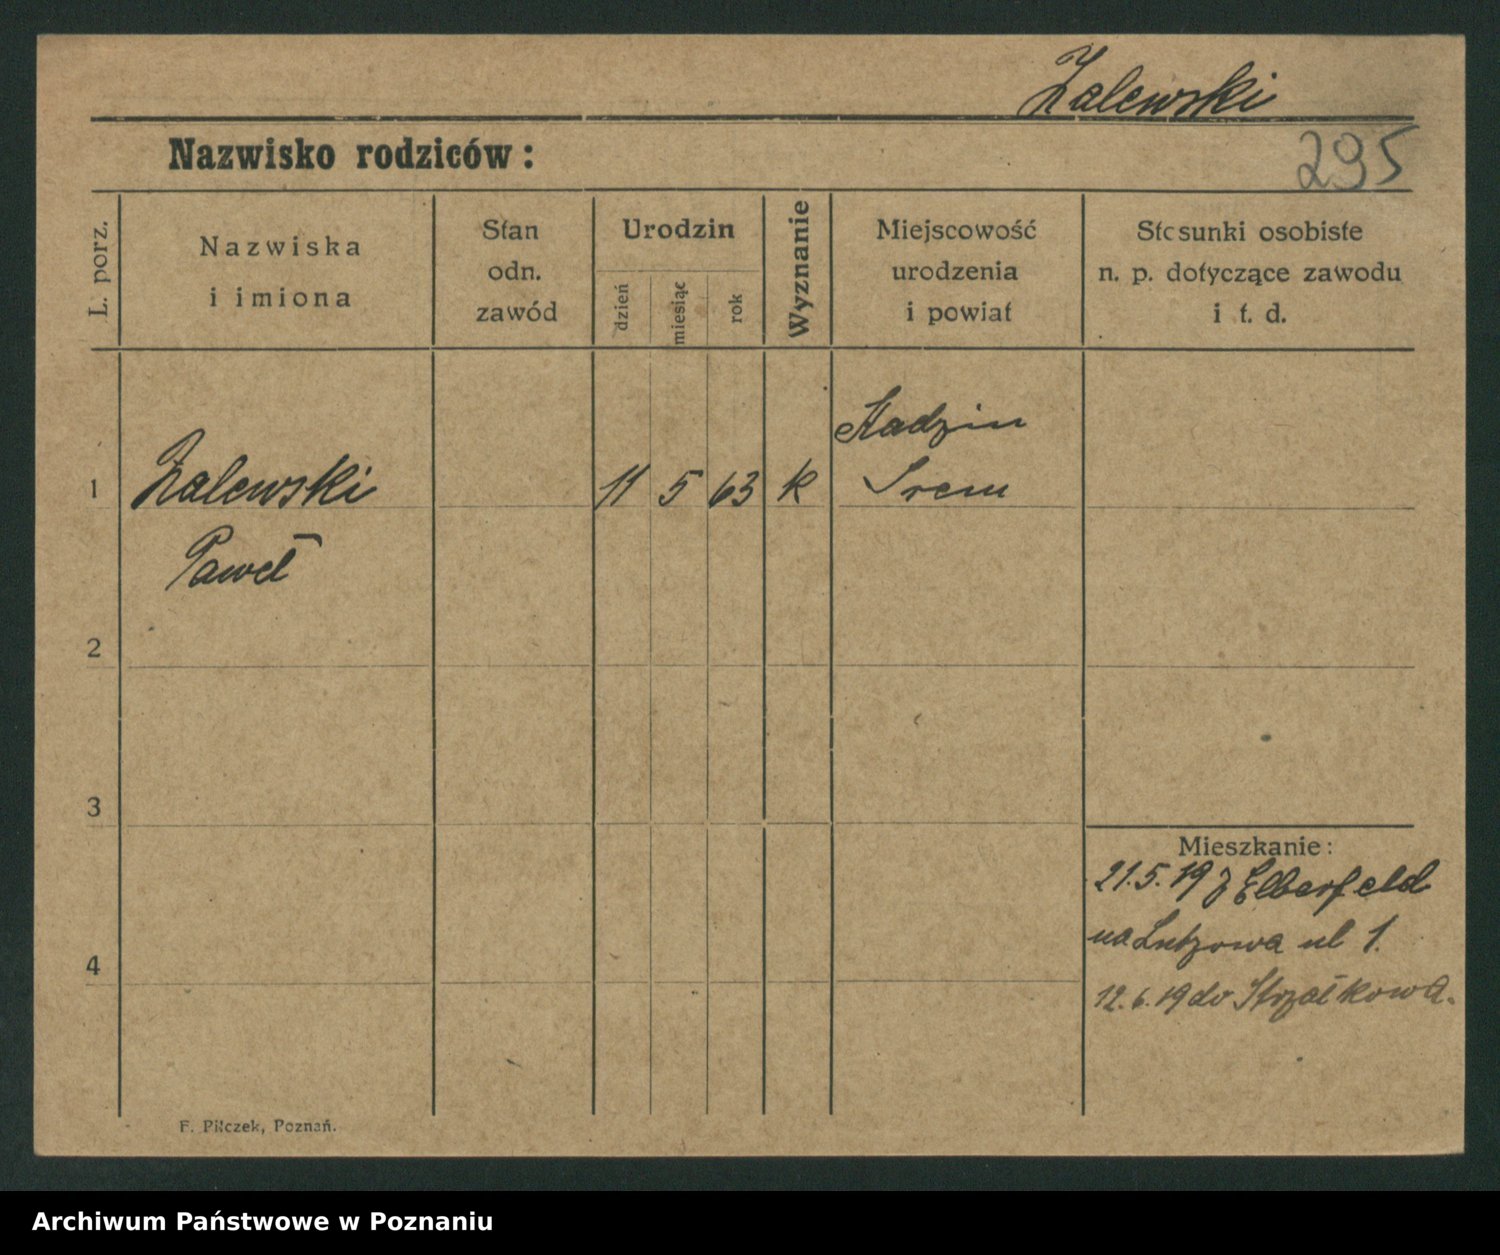 Zalewski
Nazwisko rodziców:
295
L. porz.
Nazwiska
i imiona
Stan
odn.
zawód
Urodzin
dzień
miesiąc
rok
Wyznanie
Miejscowość
urodzenia
i powiat
Stosunki osobiste
n. p. dotyczące zawodu
i t. d.
1
Zalewski
Paweł
11
5
63
k
Kadzin
Srem
2
3
4
Mieszkanie:
21.5.19 z Elberfeld
na Lutzowa ul 1.
12.6.19 do Strzałkowa.
F. Pilczek, Poznań.
Archiwum Państwowe w Poznaniu